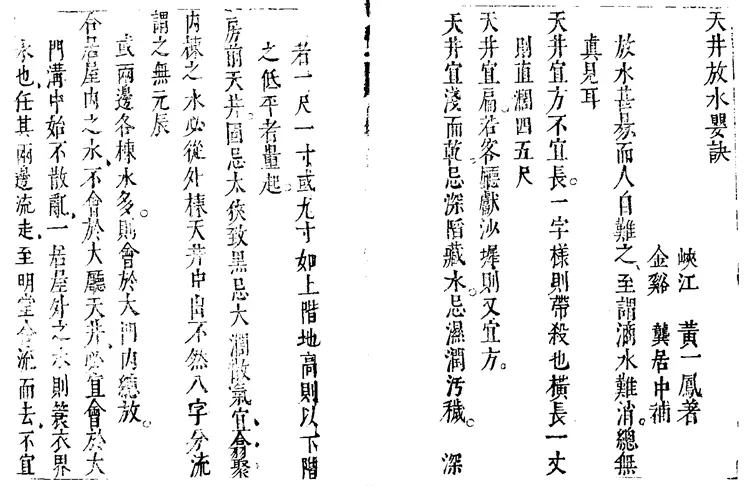 天井放水嬰訣
峽江　黃一鳳著
金谿　龔居中補
放水甚易而人自難之、至謂滴水難消。總無
真見耳
天井宜方不宜長。一字樣則帶殺也橫長一丈
則直濶四五尺
天井宜扁。若客廳獻沙墀則又宜方。
天井宜淺而乾忌深陷藏水。忌濕潤汚穢。　深
若一尺一寸或九寸如上階地高則以下階
之低平者量起。
房前天井。固忌太狹致黑忌大濶散氣宜翕聚
內棟之水必從外棟天井中出不然八字分流
謂之無元辰
或兩邊各棟水多。則會於大門內總放。
合居屋內之水、不會於大廳天井、必宜會於大
門溝中始不散亂、一居屋外之水則蓑衣界
水也、任其兩邊流走、至明堂合流而去、不宜